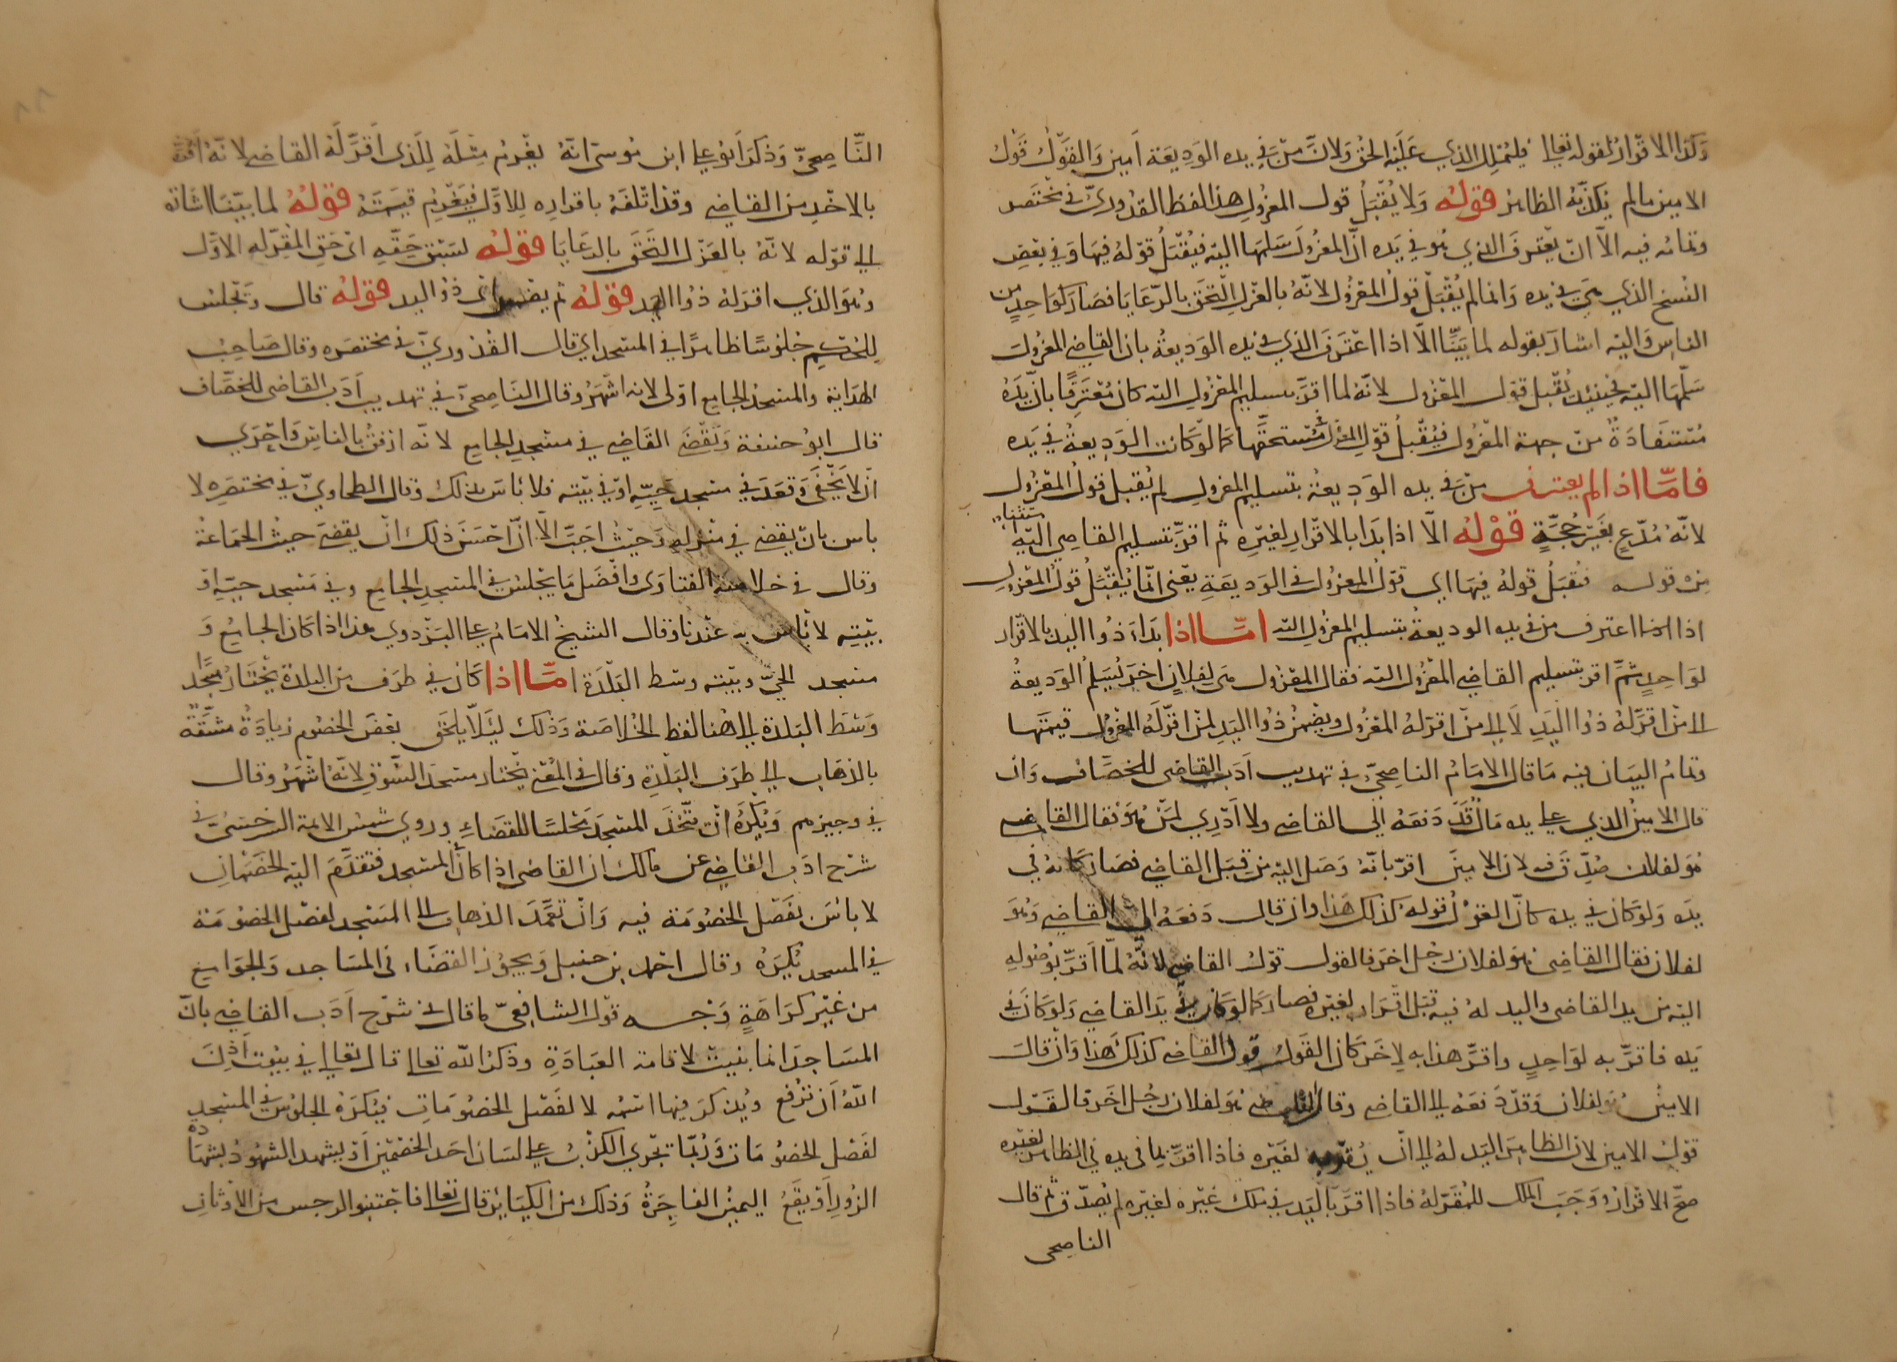 وكذا الاقرار لقوله تعالى فليملل الذي عليه الحق ولان من في يده الوديعة امين والقول قول
الامين ما لم يكذبه الظاهر قوله ولا يقبل قول المعزول هذا لفظ القدوري في مختصر
وتمامه فيه الا ان يعترف الذي هو في يده ان المعزول سلمها اليه فيقبل قوله فيها وفي بعض
النسخ الذي هي في يده وانما لم يقبل قول المعزول لانه بالعزل التحق بالرعايا فصار كواحد من
الناس واليه اشار بقوله لما بينا الا اذا اعترف الذي في يده الوديعة بان القاضي المعزول
سلمها اليه فحينئذ يقبل قول المعزول لانه لما اقر بتسليم المعزول اليه كان معترفا بان يده
مستفادة من جهة المعزول فيقبل قول المعزول في مستحقها كما لو كانت الوديعة في يده
فاما اذا لم يعترف من في يده الوديعة بتسليم المعزول لم يقبل قول المعزول
لانه مدع بغير حجة قوله الا اذا بدا بالاقرار لغيره ثم اقر بتسليم القاضي اليه استثناء
من قوله فيقبل قوله فيها اي قول المعزول في الوديعة يعني انما يقبل قول المعزول
اذا اعترف من في يده الوديعة بتسليم المعزول اليه اما اذا بدا ذوا اليد بالاقرار
لواحد ثم اقر بتسليم القاضي المعزول اليه فقال المعزول هي لفلان اخر يسلم الوديعة
الى من اقر له ذوا اليد لا الى من اقر له المعزول ويضمن ذوا اليد لمن اقر له المعزول قيمتها
وتمام البيان فيه ما قال الامام الناصحي في تهذيب ادب القاضي للخصاف وان
قال الامين الذي على يده مال قد دفعه الي القاضي ولا ادري لمن هو فقال القاضي
هو لفلان صدق فيه لان الامين اقر بانه وصل اليه من قبل القاضي فصار كانه في
يده ولو كان في يده كان القول قوله كذلك هذا وان قال دفعه الي القاضي وهو
لفلان فقال القاضي هو لفلان رجل اخر فالقول قول القاضي لانه لما اقر بوصوله
اليه من يد القاضي واليد له فيه قبل اقرار لغيره فصار كما لو كان في يد القاضي ولو كان في
يده فاقر به لواحد واقر هذا به لاخر كان القول قول القاضي كذلك هذا وان قال
الامين هو لفلان وقد دفعه الي القاضي وقال القاضي هو لفلان رجل اخر فالقول
قول الامين لان الظاهر اليد له الى ان يقر به لغيره فاذا اقر بما في يده في الظاهر لغيره
صح الاقرار ووجب الملك للمقر له فاذا اقر باليد في ملك غيره لغيره لم يصدق ثم قال
الناصحي
الناصحي وذكر ابو علي ابن موسى انه يغرم مثله للذي اقر له القاضي لانه اقر
بالاخذ من القاضي وقد اتلفه باقراره للاول فيغرم قيمته قوله لما بينا اشارة
الى قوله لانه بالعزل التحق بالرعايا قوله لسبق حقه اي حق المقر له الاول
وهو الذي اقر له ذوا اليد قوله ثم يضمن اي ذو اليد قوله قال ويجلس
للحكم جلوسا ظاهرا في المسجد اي قال القدوري في مختصره وقال صاحب
الهداية والمسجد الجامع اولى لانه اشهر وقال الناصحي في تهذيب ادب القاضي للخصاف
قال ابو حنيفة ويقضي القاضي في مسجد الجامع لانه ارفق بالناس واحرى
ان لا يخفى وقعد في مسجد حيه او في بيته فلا باس بذلك وقال الطحاوي في مختصره لا
باس بان يقضي في منزله وحيث احب الا ان احسن ذلك ان يقضي حيث الجماعة
وقال في خلاصة الفتاوى وافضل ما يجلس في المسجد الجامع وفي مسجد حيه او
بيته لا باس به عندنا وقال الشيخ الامام علي البزدوي هذا اذا كان الجامع و
مسجد الحي وبيته وسط البلدة اما اذا كان في طرف من البلدة يختار مسجدا
وسط البلدة الى هنا لفظ الخلاصة وذلك ليلا يلحق بعض الخصوم زيادة مشقة
بالذهاب الى طرف البلدة وقال في المغني يختار مسجد السوق لانه اشهر وقال
في وجيزهم ويكره ان يتخذ المسجد مجلسا للقضاء وروي شمس الايمة السرخسي في
شرح ادب القاضي عن مالك ان القاضي اذا كان المسجد فتقدم اليه الخصمان
لا باس بفصل الخصومة فيه وان تعمد الذهاب الى المسجد لفصل الخصومة
في المسجد يكره وقال احمد بن حنبل ويجوز القضاء في المساجد والجوامع
من غير كراهة وجه قول الشافعي ما قال في شرح ادب القاضي بان
المساجد انما بنيت لاقامة العبادة وذكر الله تعالى قال تعالى في بيوت اذن
الله ان ترفع ويذكر فيها اسمه لا لفصل الخصومات فيكره الجلوس في المسجد
لفصل الخصومات وربما تجري الكذب على لسان احد الخصمين او يشهد الشهود بشهادة
الزور او يقع اليمين الفاجرة وذلك من الكبائر قال تعالى فاجتنبوا الرجس من الاوثان